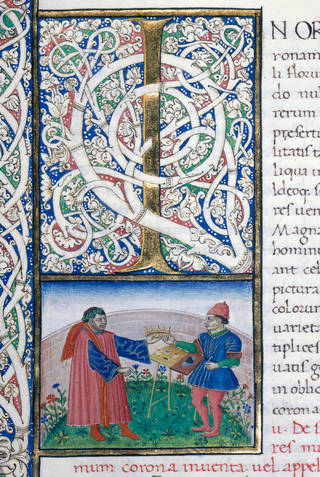 I N OR
ronam
li floru
do nul
rerum
preserti
litatis t
liqua u
Ideoq; s
res uer
Magna
hominu
ant cel
pictura
colorum
uarieta
tiplices
uaus g
in oblic
corona
u. De s
res ma
mum corona inuenta uel appel